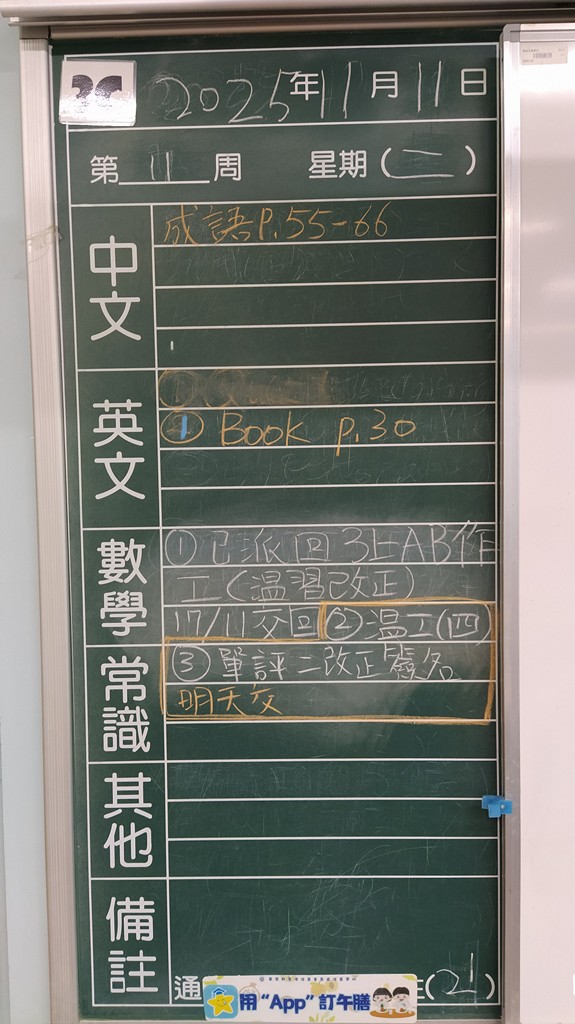 2025年11月11日
第 11 周 星期(二)
中文
成語P.55-66
英文
① Book p.30
數學
①已派回3上AB作
工(溫習改正)
17/11交回 ②溫工(四)
常識
③單評二改正簽名
明天交
其他
備註
通
(21)
用“App”訂午膳